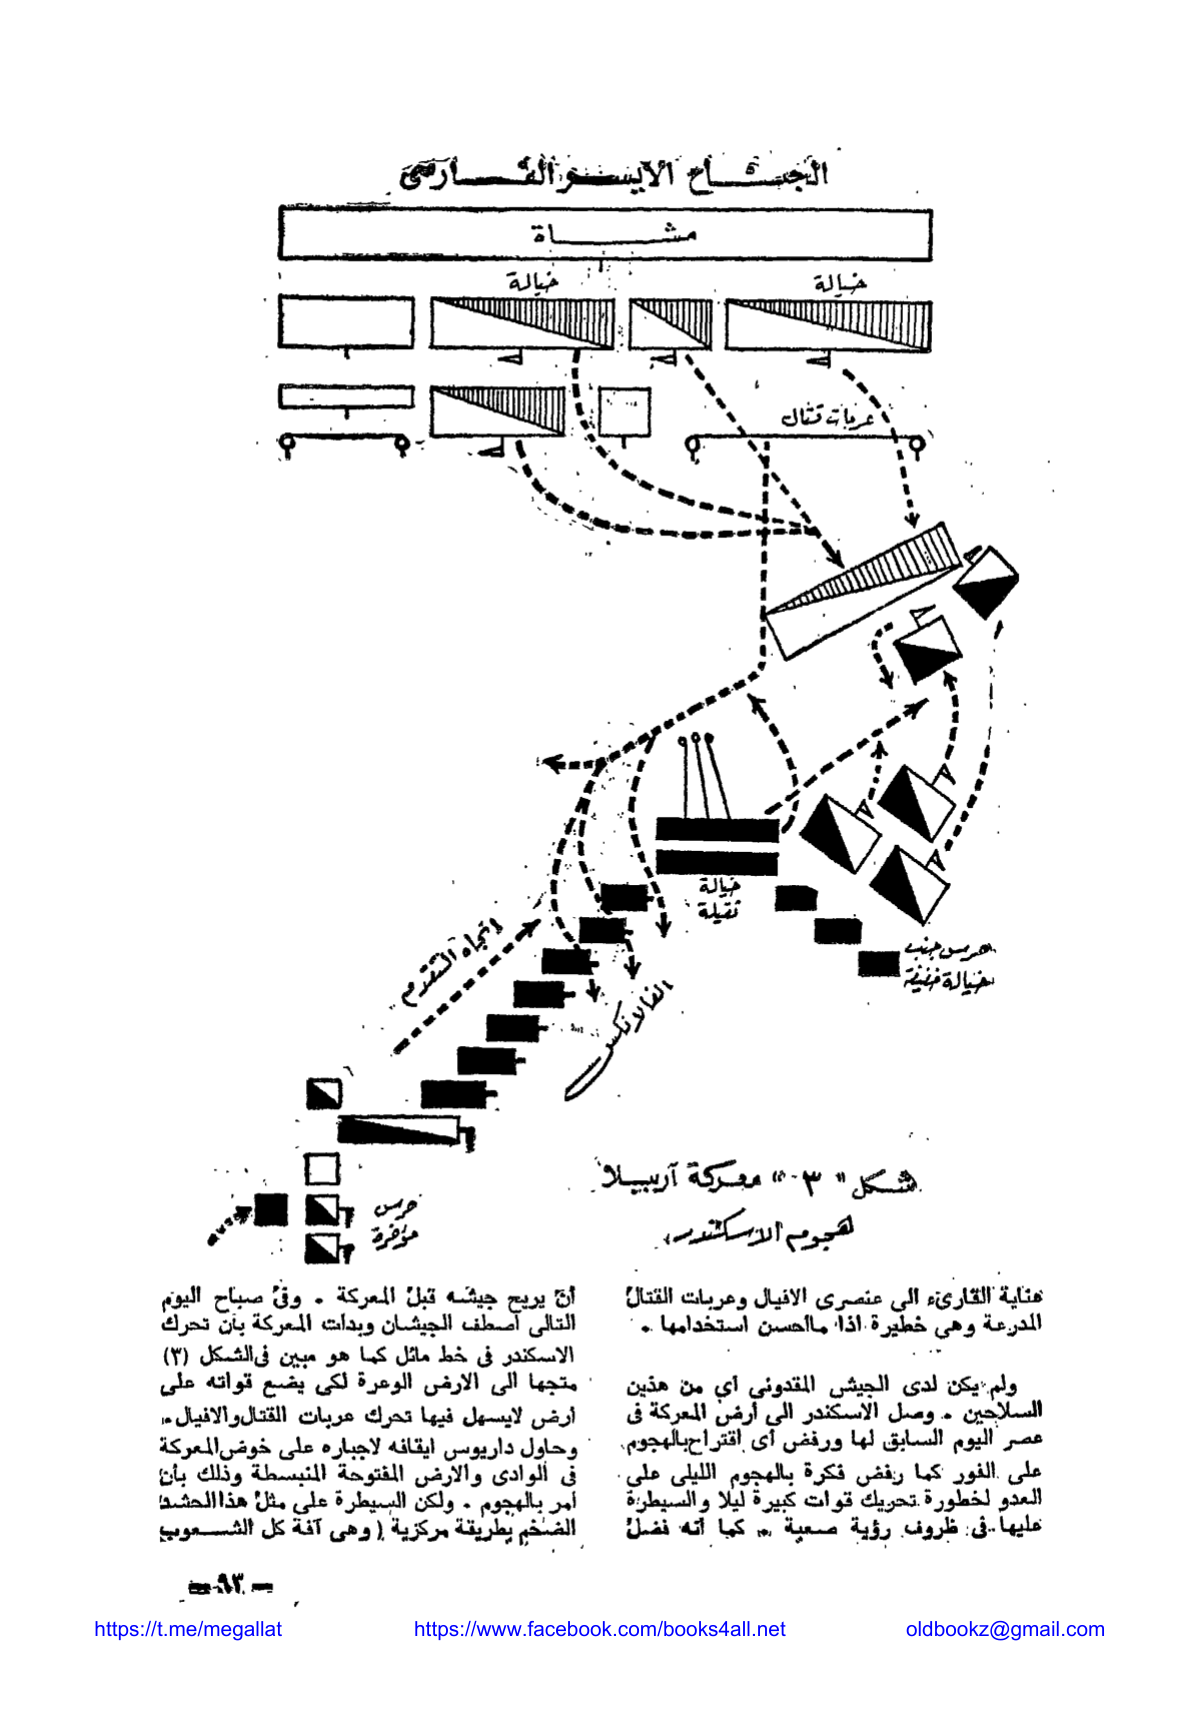 الجنــــاح الأيســـر الفــــارسى
مشـــــــاة
خيالة
خيالة
عربات قتال
خيالة
ثقيلة
حرس جنب
خيالة خفيفة
اتجاه التقدم
الفالانكس
حرس
مؤخرة
شكل "٣" معركة آربيلا
هجوم الاسكندر
عناية القارىء الى عنصرى الافيال وعربات القتال
المدرعة وهي خطيرة اذا ما احسن استخدامها .
ولم يكن لدى الجيش المقدوني أي من هذين
السلاحين . وصل الاسكندر الى أرض المعركة فى
عصر اليوم السابق لها ورفض أى اقتراح بالهجوم
على الفور كما رفض فكرة بالهجوم الليلى على
العدو لخطورة تحريك قوات كبيرة ليلا والسيطرة
عليها فى ظروف رؤية صعبة . كما أنه فضل
أن يريح جيشه قبل المعركة . وفى صباح اليوم
التالى اصطف الجيشان وبدات المعركة بأن تحرك
الاسكندر فى خط مائل كما هو مبين فى الشكل (٣)
متجها الى الارض الوعرة لكى يضع قواته على
أرض لايسهل فيها تحرك عربات القتال والافيال .
وحاول داريوس ايقافه لاجباره على خوض المعركة
فى الوادى والارض المفتوحة المنبسطة وذلك بأن
أمر بالهجوم . ولكن السيطرة على مثل هذا الحشد
الضخم بطريقة مركزية ( وهى آفة كل الشــعوب
— ٩٣ —
https://t.me/megallat
https://www.facebook.com/books4all.net
oldbookz@gmail.com